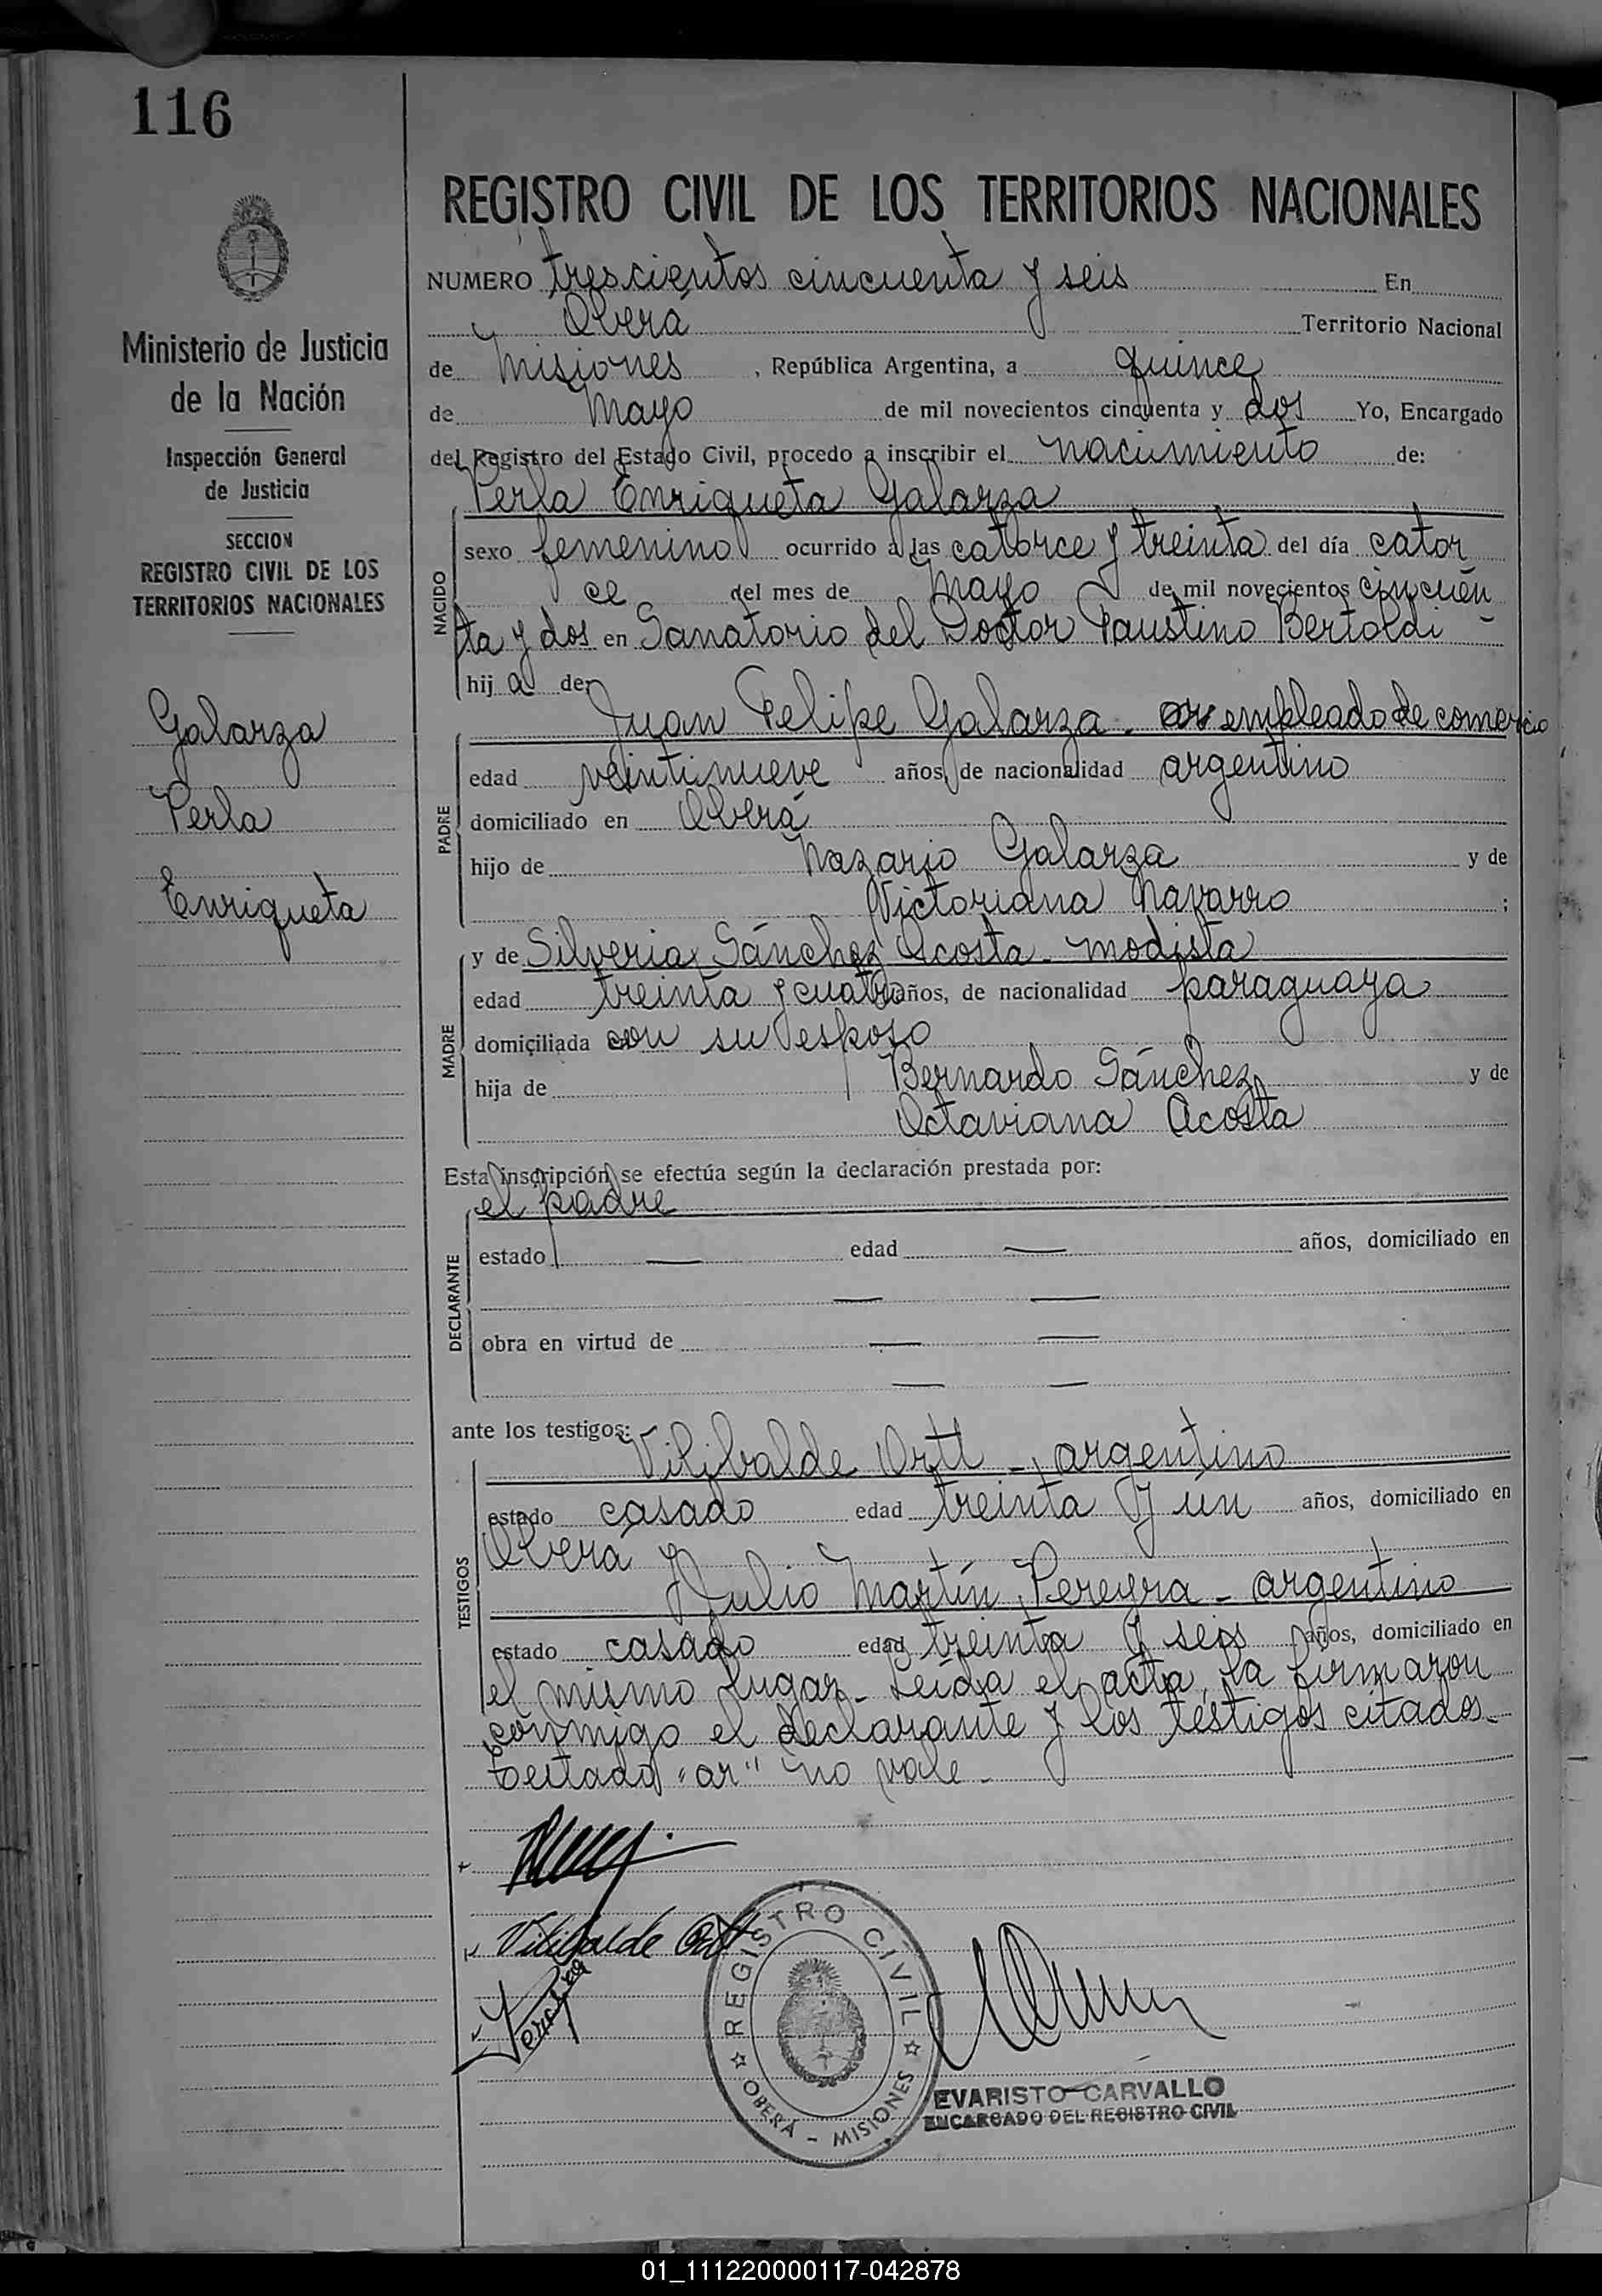 116
REGISTRO CIVIL DE LOS TERRITORIOS NACIONALES
Ministerio de Justicia
de la Nación
Inspección General
de Justicia
SECCION
REGISTRO CIVIL DE LOS
TERRITORIOS NACIONALES
Galarza
Perla
Enriqueta
NUMERO trescientos cincuenta y seis En
Oberá Territorio Nacional
de Misiones, República Argentina, a quince
de Mayo de mil novecientos cincuenta y dos Yo, Encargado
del Registro del Estado Civil, procedo a inscribir el nacimiento de:
Perla Enriqueta Galarza
NACIDO
sexo femenino ocurrido a las catorce y treinta del día cator
ce del mes de Mayo de mil novecientos cincuen
ta y dos en Sanatorio del Doctor Faustino Bertoldi -
hij a de:
Juan Felipe Galarza - ar empleado de comercio
PADRE
edad veintinueve años, de nacionalidad argentino
domiciliado en Oberá
hijo de Nazario Galarza y de
Victoriana Navarro ;
y de Silveria Sánchez Acosta - modista
MADRE
edad treinta y cuatro años, de nacionalidad paraguaya
domiciliada con su esposo
hija de Bernardo Sánchez y de
Octaviana Acosta
Esta inscripción se efectúa según la declaración prestada por:
el padre
DECLARANTE
estado — edad — años, domiciliado en
— —
obra en virtud de — —
— —
ante los testigos:
Vilibalde Ortt - argentino
TESTIGOS
estado casado edad treinta y un años, domiciliado en
Oberá
Julio Martín Pereyra - argentino
estado casado edad treinta y seis años, domiciliado en
el mismo lugar - Leída el acta, la firmaron
conmigo el declarante y los testigos citados -
testado "ar" no vale -
Vilibalde Ortt
REGISTRO CIVIL
OBERÁ - MISIONES
EVARISTO CARVALLO
ENCARGADO DEL REGISTRO CIVIL
01_111220000117-042878